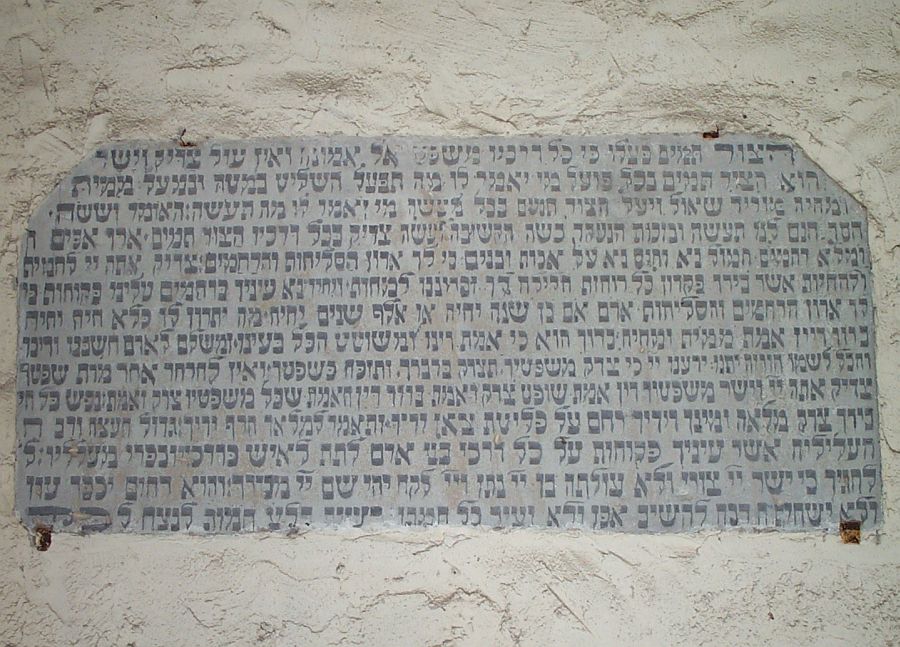 הצור תמים פעלו כי כל דרכיו משפט אל אמונה ואין עול צדיק וישר
הוא הצור תמים בכל פועל מי יאמר לו מה תפעל השליט במטה ובמעל ממית
ומחיה מוריד שאול ויעל הצור תמים בכל מעשה מי יאמר לו מה תעשה האומר ועושה
חסד חנם לנו תעשה ובזכות הנעקד כשה הקשיבה ועשה צדיק בכל דרכיו הצור תמים ארך אפים ה
ומלא רחמים חמול נא וחוס נא על אבות ובנים כי לך אדון הסליחות והרחמים צדיק אתה יי להמית
ולהחיות אשר בידך פקדון כל רוחות חלילה לך זכרוננו למחות ויהיו נא עיניך ברחמים עלינו פקוחות כי
לך אדון הרחמים והסליחות אדם אם בן שנה יהיה או אלף שנים יחיה מה יתרון לו כלא היה יהיה
ברוך דיין אמת ממית ומחיה ברוך הוא כי אמת דינו ומשוטט הכל בעינו ומשלם לאדם חשבנו ודינו
והכל לשמו הודיה יתנו ידענו יי כי צדק משפטיך תצדק בדברך ותזכה בשפטך ואין להרהר אחר מדת שפטך
צדיק אתה יי וישר משפטיך דיין אמת שופט צדק ואמת ברוך דיין האמת שכל משפטיו צדק ואמת נפש כל חי
בידך צדק מלאה ימינך וידך רחם על פליטת צאן ידיך ותאמר למלאך הרף ידך גדול העצה ורב ה
העליליה אשר עיניך פקוחות על כל דרכי בני אדם לתת לאיש כדרכיו וכפרי מעלליו ל
להגיד כי ישר יי צורי ולא עולתה בו יי נתן ויי לקח יהי שם יי מבורך והוא רחום יכפר עון
ולא ישחית והרבה להשיב אפו ולא יעיר כל חמתו בלע המות לנצח